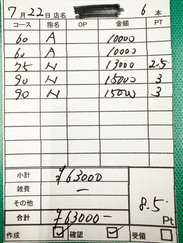 7月22日 店名 6本
コース 指名 OP 金額 PT
60 A 10000
60 A 10000
75 N 13000 2.5
90 N 15000 3
90 N 15000 3
小計 ¥63000
雑費 —
その他 8.5 Pt
合計 ¥63000—
作成 確認 受領